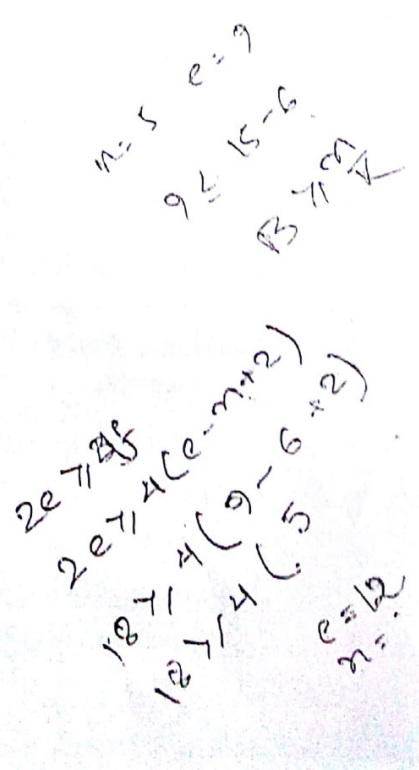 n = 5 e = 9
9 ≤ 15 - 6
2e ≥ 4
2e ≥ 4(e - n + 2)
18 ≥ 4(9 - 6 + 2)
18 ≥ 4(5
e = 12
n =